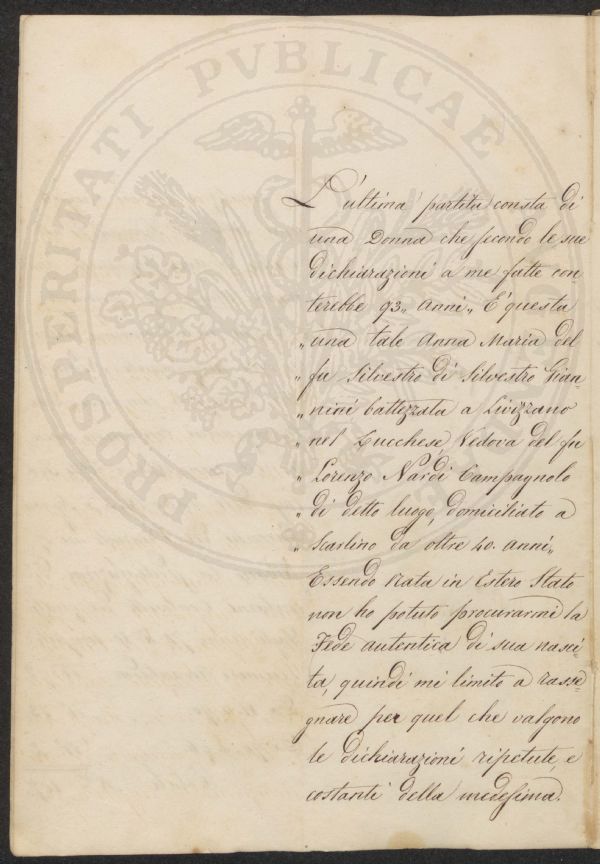 PROSPERITATI PVBLICAE
L'ultima partita consta di
una Donna che secondo le sue
dichiarazioni a me fatte con
terebbe 93,, anni,, E' questa
,, una tale Anna Maria del
,, fu Silvestro di Silvestro Gian=
,, nini battezzata a Livizzano
,, nel Lucchese, Vedova del fu
,, Lorenzo Nardi Campagnolo
,, di detto luogo, domiciliato a
,, Scarlino da oltre 40. anni,,
Essendo nata in Estero Stato
non ho potuto procurarmi la
Fede autentica di sua nasci=
ta, quindi mi limito a rasse=
gnare per quel che valgono
le dichiarazioni ripetute, e
costanti della medesima.